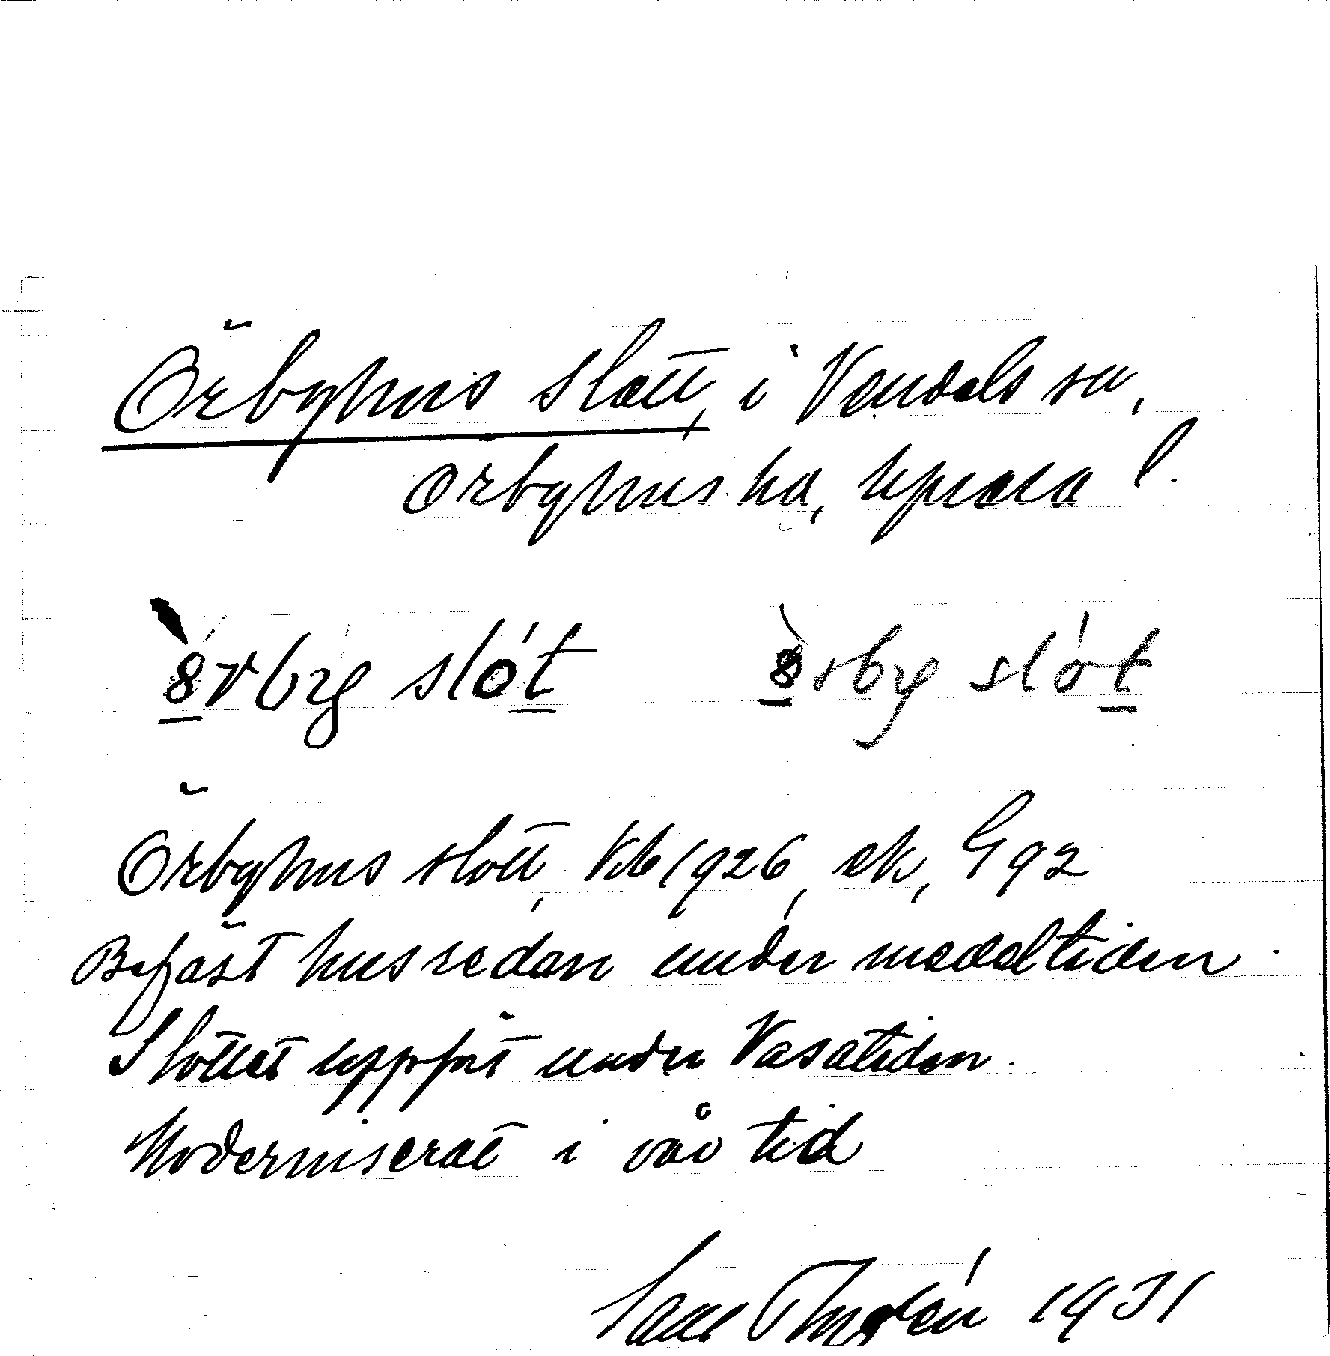 Örbyhus slott, i Vendels sn,
Örbyhus hd, Uppsala l.
Örbyhus slott, Vb 1926, ek, G 92
Befäst hus redan under medeltiden.
Slottet uppfört under Vasatiden.
Moderniserat i vår tid
1931